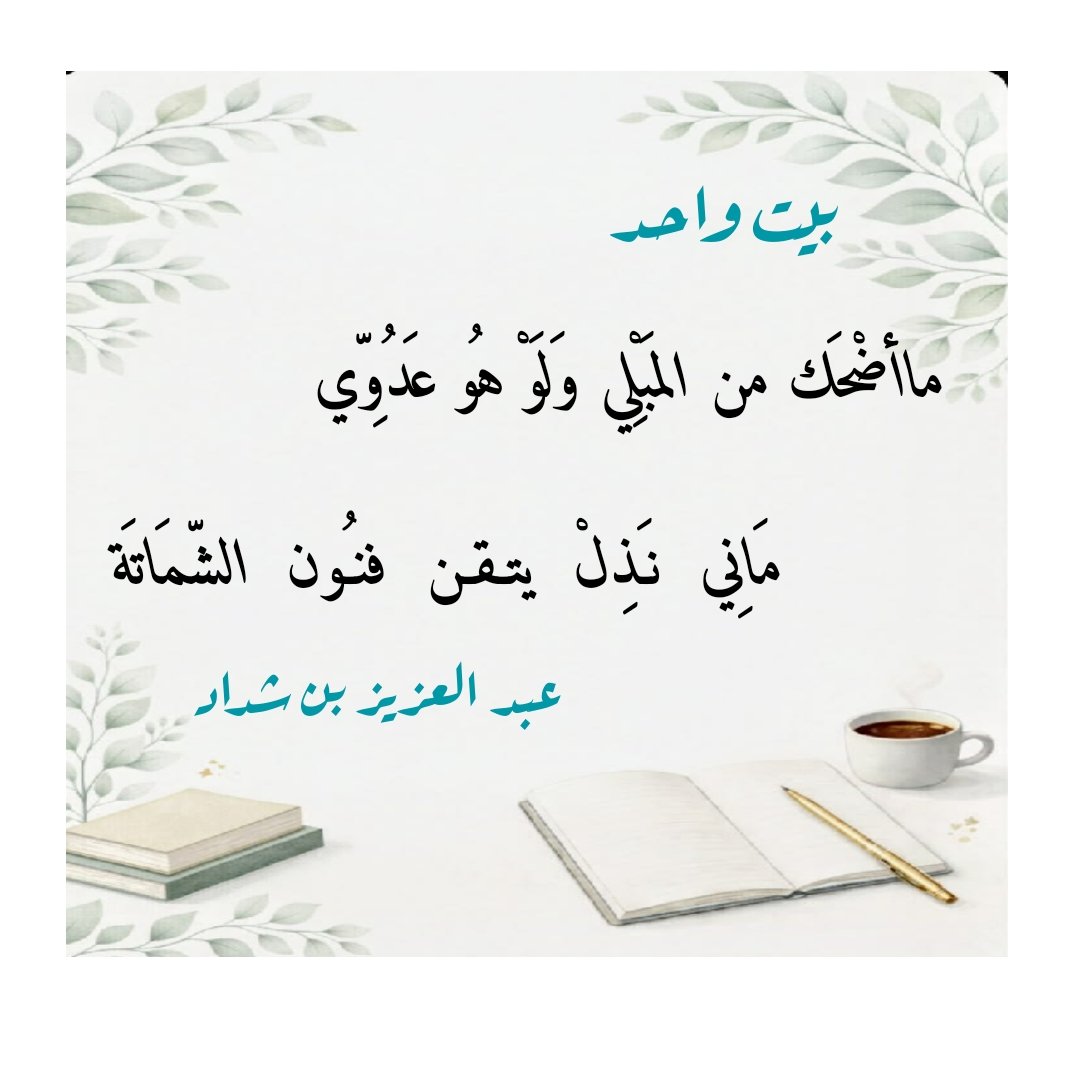 بيت واحد
ماأضْحَك من المبَلِْي وَلَوَْ هوُ عَدُوِّي
مَانِي نَذِلْ يتـقـن فنـُون الشّمَاتَة
عبد العزيز بن شداد